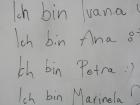 Ich bin Ivana
Ich bin Ana
Ich bin Petra :)
Ich bin Marinela